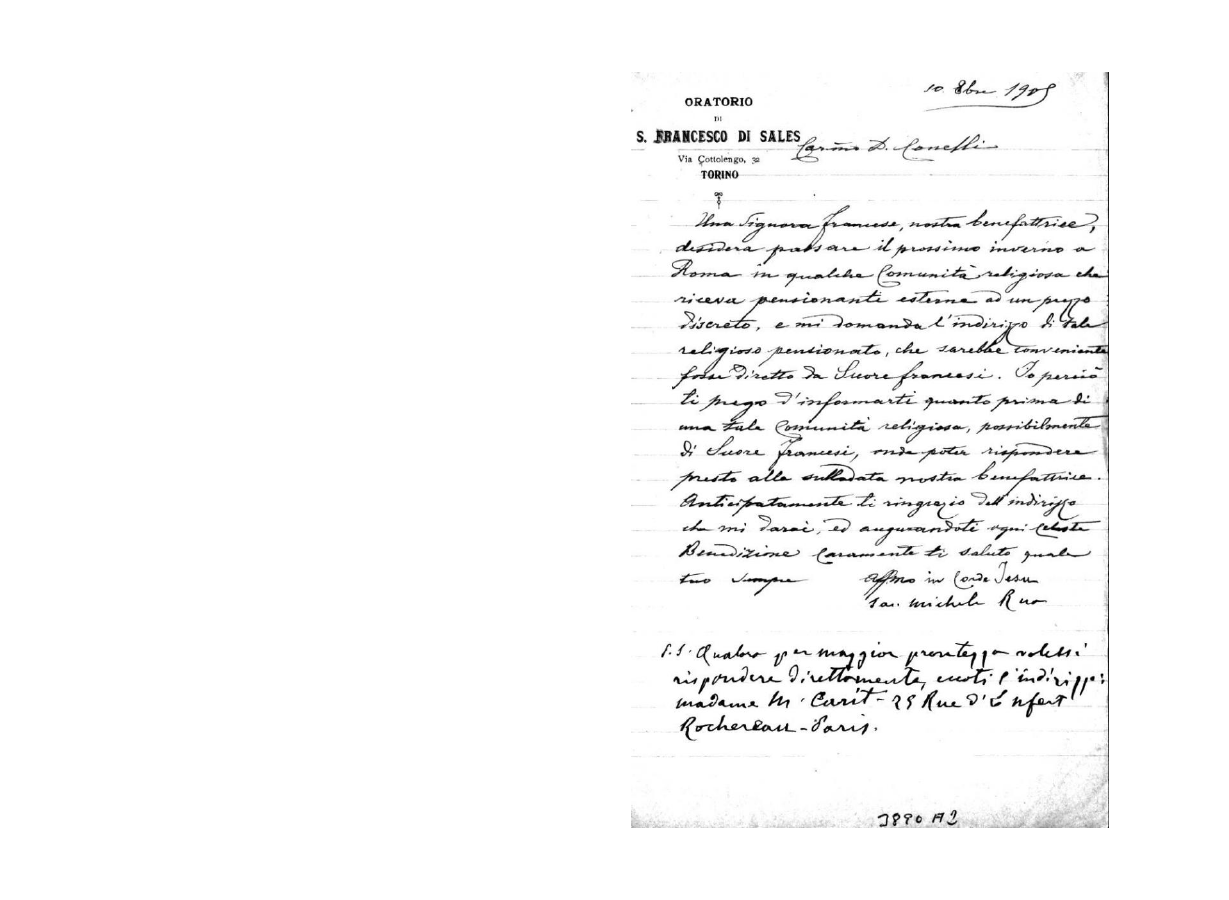 10 8bre 1905
ORATORIO
DI
S. FRANCESCO DI SALES
Via Cottolengo, 32
TORINO
Carmo D. Conelli
Una Signora francese, nostra benefattrice,
desidera passare il prossimo inverno a
Roma in qualche Comunità religiosa che
riceva pensionanti esterne ad un prezzo
discreto, e mi domanda l'indirizzo di tale
religioso pensionato, che sarebbe conveniente
fosse diretto da Suore francesi. Io perciò
ti prego d'informarti quanto prima di
una tale Comunità religiosa, possibilmente
di Suore francesi, onde poter rispondere
presto alla sullodata nostra benefattrice.
Anticipatamente ti ringrazio dell'indirizzo
che mi darai, ed augurandoti ogni Celeste
Benedizione caramente ti saluto quale
tuo sempre affmo in Corde Jesu
sac. Michele Rua
P.S. Qualora per maggior prontezza volessi
rispondere direttamente, eccoti l'indirizzo:
madame M. - 25 Rue d'Enfert
Rochereau - Paris.
3890 A2